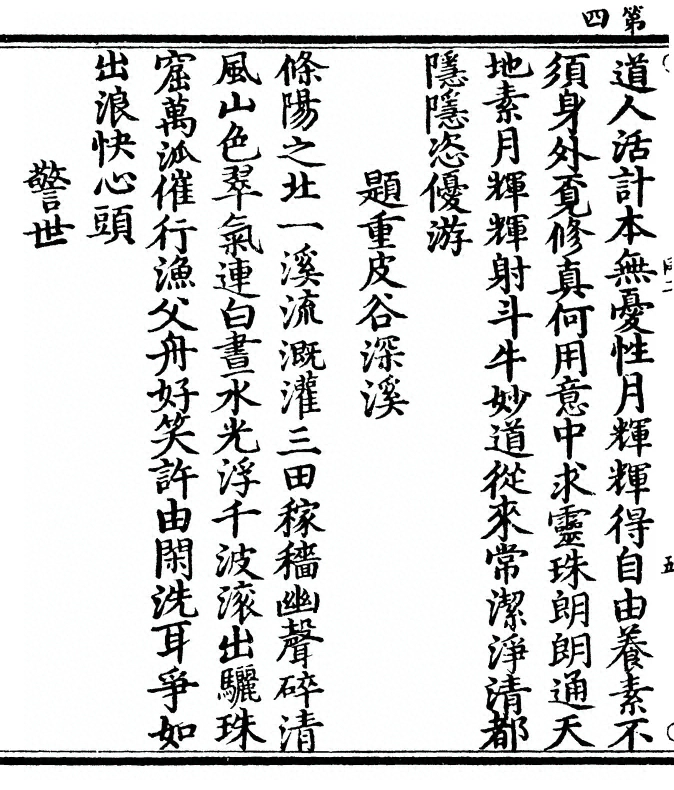 第四
道人活計本無憂性月輝輝得自由養素不
須身外覓修真何用意中求靈珠朗朗通天
地素月輝輝射斗牛妙道從來常潔淨清都
隱隱恣優游
題重皮谷深溪
條陽之北一溪流溉灌三田稼穡幽聲碎清
風山色翠氣連白晝水光浮千波滚出驪珠
窟萬派催行漁父舟好笑許由閑洗耳爭如
出浪快心頭
警世